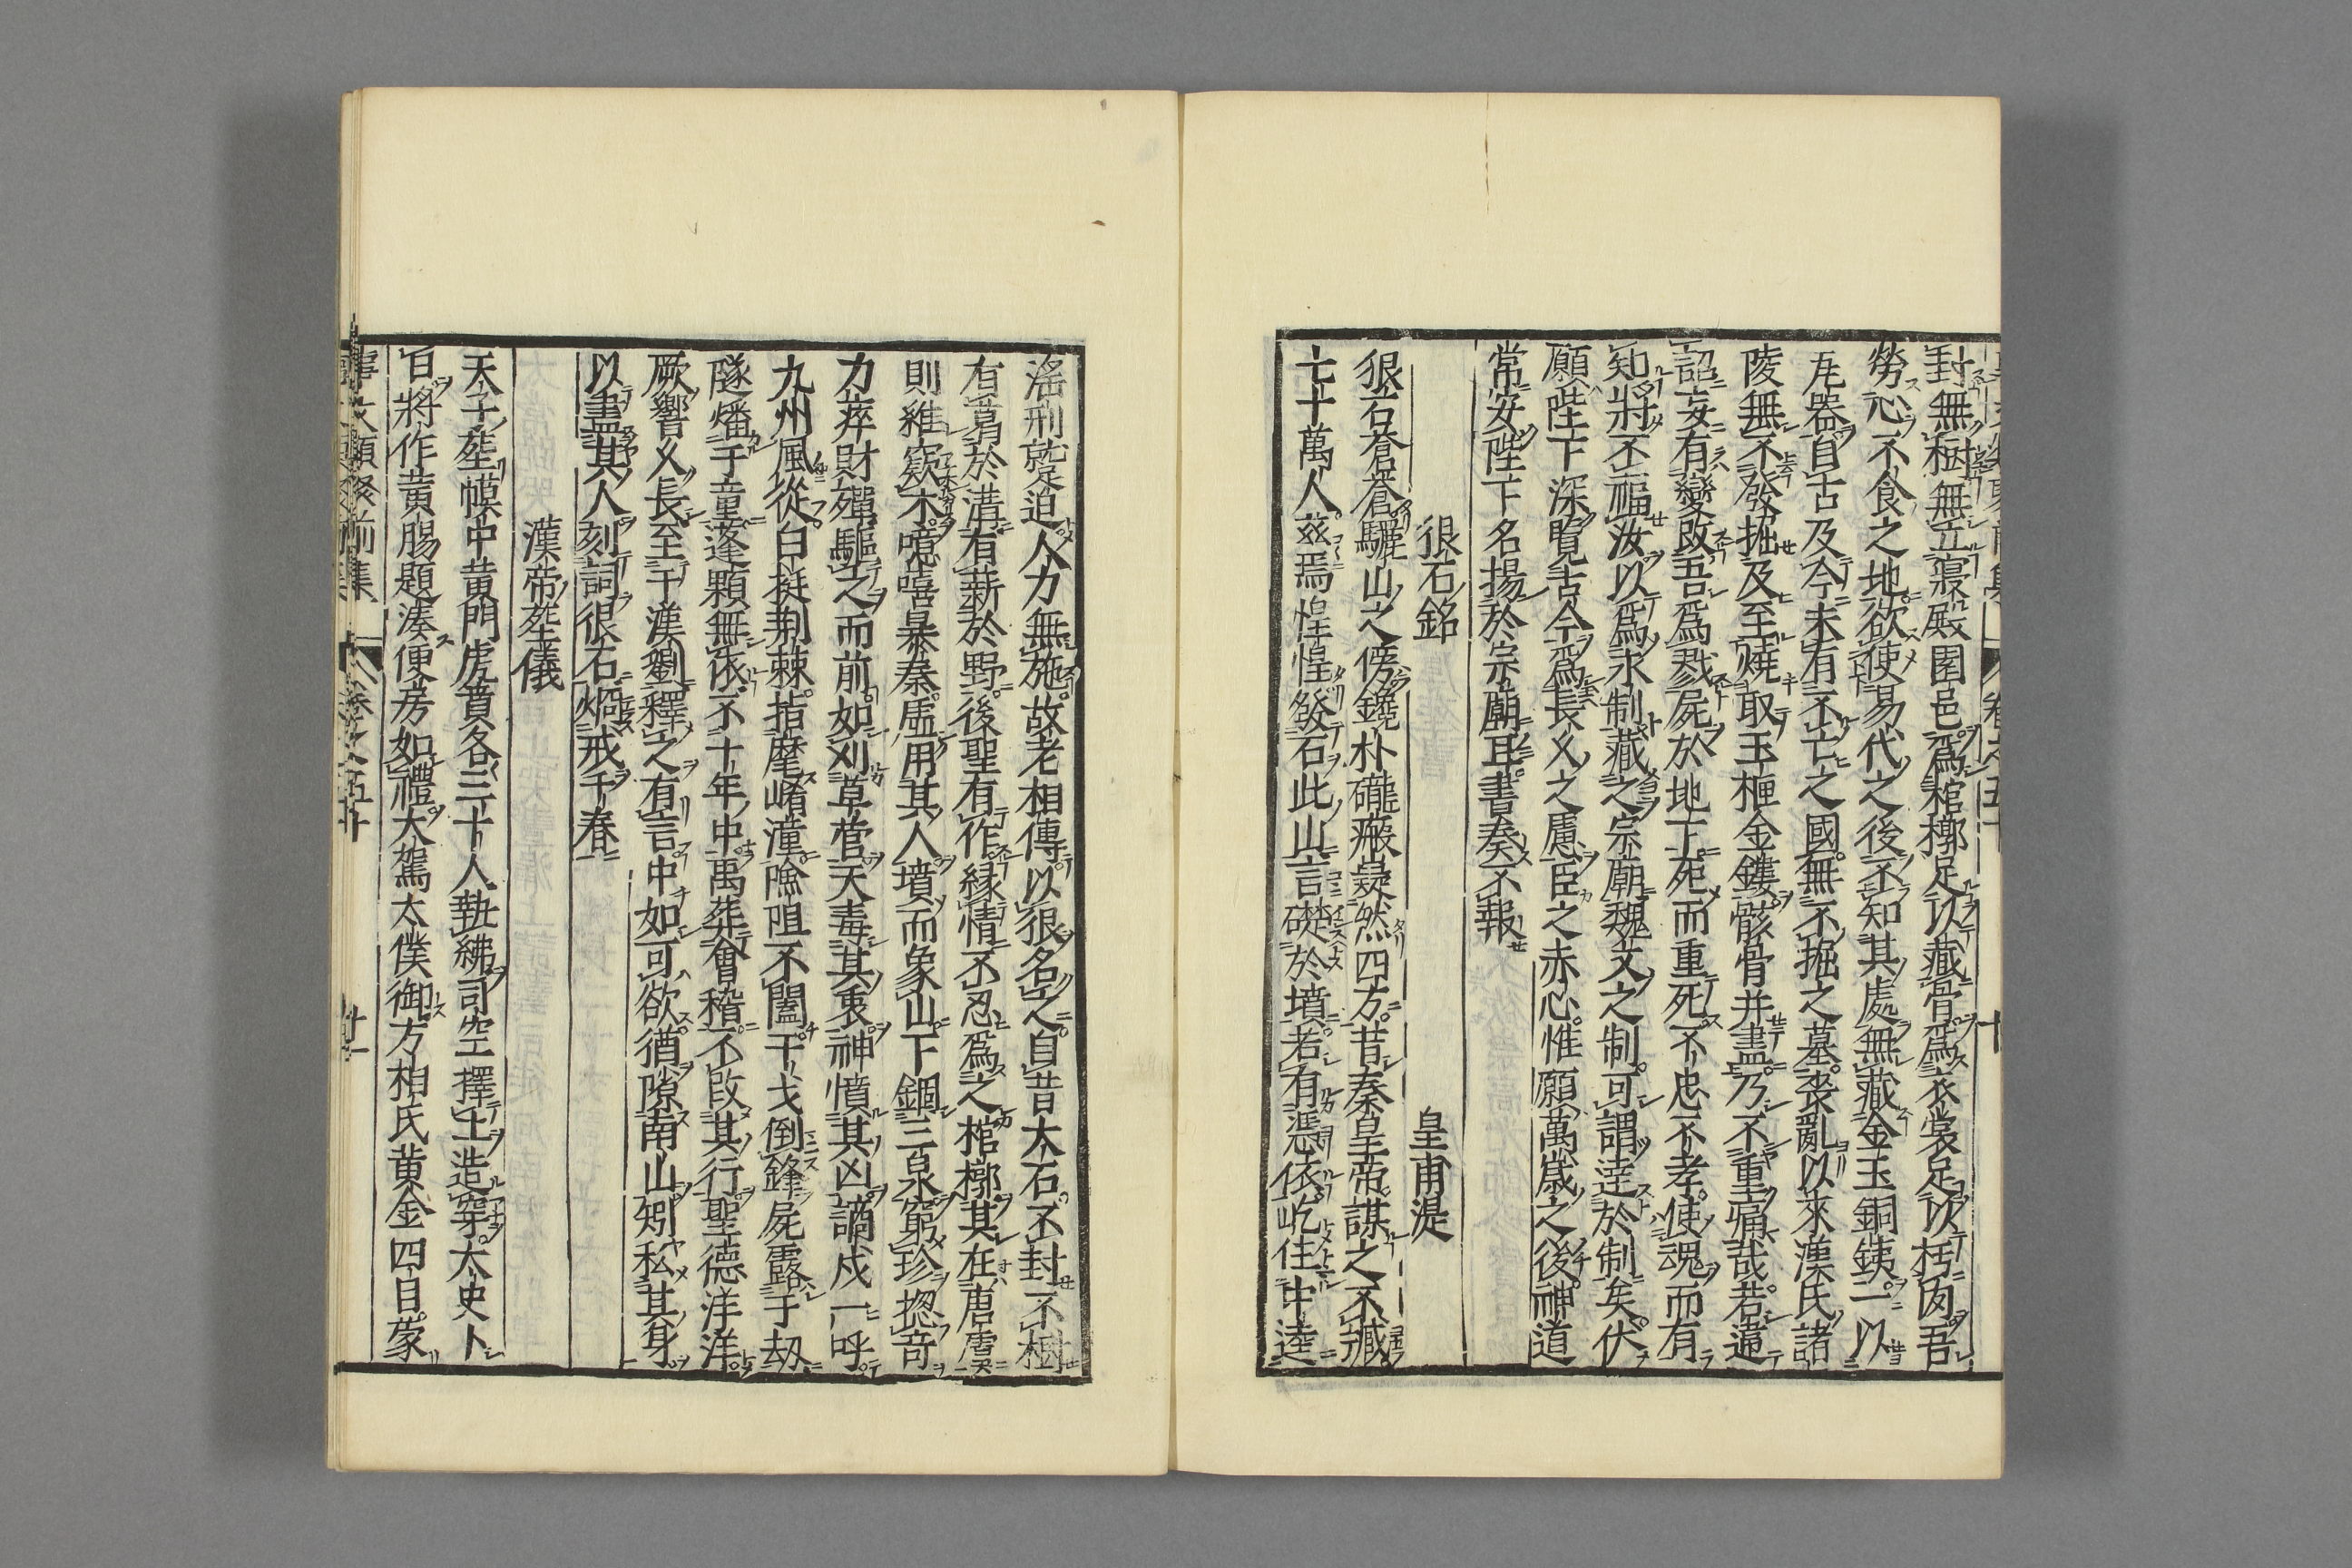 封無樹無立寢殿園邑爲棺槨足以藏骨爲衣裳足以朽囱吾
勞心不食之地欲使易代之後不知其處無藏金玉銅銕一以
瓦器自古及今未有不亡之國無不掘之墓喪亂以來漢氏諸
陵無不發掘及至燒取玉柙金鏤骸骨并盡乃不重痛哉若違
詔妄有變改吾爲戮屍於地下死而重死不忠不孝使魂而有
知將不福汝以爲永制藏之宗廟魏文之制可謂達於制矣伏
願陛下深覽古今爲長乂之慮臣之赤心惟願萬歲之後神道
常安陛下名揚於宗廟耳書奏不報
很石銘 皇甫湜
很石蒼蒼驪山之傍鑱朴礲癥嶷然四方昔秦皇帝謀之不臧
七十萬人茲焉惶惶發石此山言礎於墳若有憑依屹住中逵
滛刑就迫人力無施故老相傳以很名之自昔太石不封不樹
有蒉於溝有薪於野後聖有作縁情不忍爲之棺槨其在唐虞
則雖窾木噫嘻暴秦虐用其人墳而象山下錮三泉窮珍揔竒
力瘁財殫驅之而前如刈草菅天毒其衷神憤其凶謫戍一呼
九州風從白挺荆棘指麾崤潼險阻不闔干戈倒鋒屍露于刼
隧燔于童蓬顆無依不十年中禹葬會稽不改其行聖德洋洋
厥響乂長至于漢劉釋之有言中如可欲猶隙南山矧私其身
以盡其人刻詞很石烱戒千春
漢帝塟儀
天子塟幙中黄門虎賁各三十人執紼司空擇土造穿太史卜
日將作黄腸題湊便房如禮大駕太僕御方相氏黄金四目蒙
事文類聚前集 卷之五十 廿一